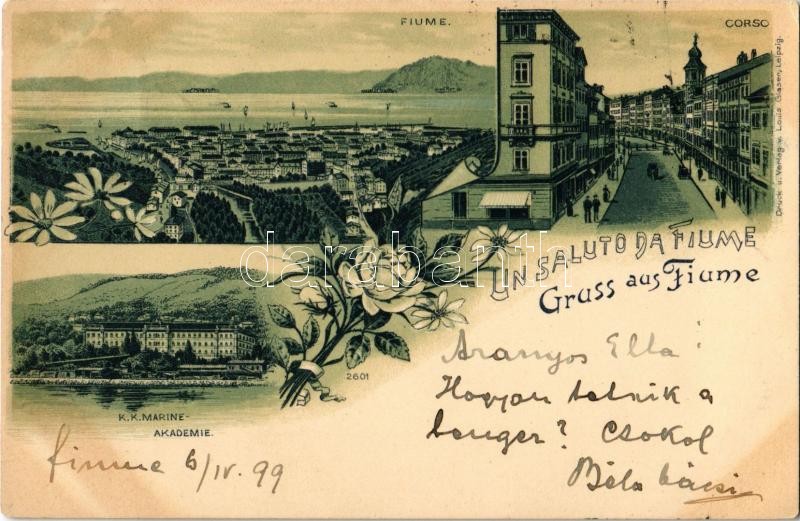 FIUME.
CORSO
Druck u. Verlag v. Louis Glaser, Leipzig.
UN SALUTO DA FIUME
Gruss aus Fiume
2601
K.K. MARINE-
AKADEMIE.
Aranyos Ella!
Hogyan tetszik a
tenger? Csokol
Béla bácsi
Fiume 6/IV. 99
darabanth